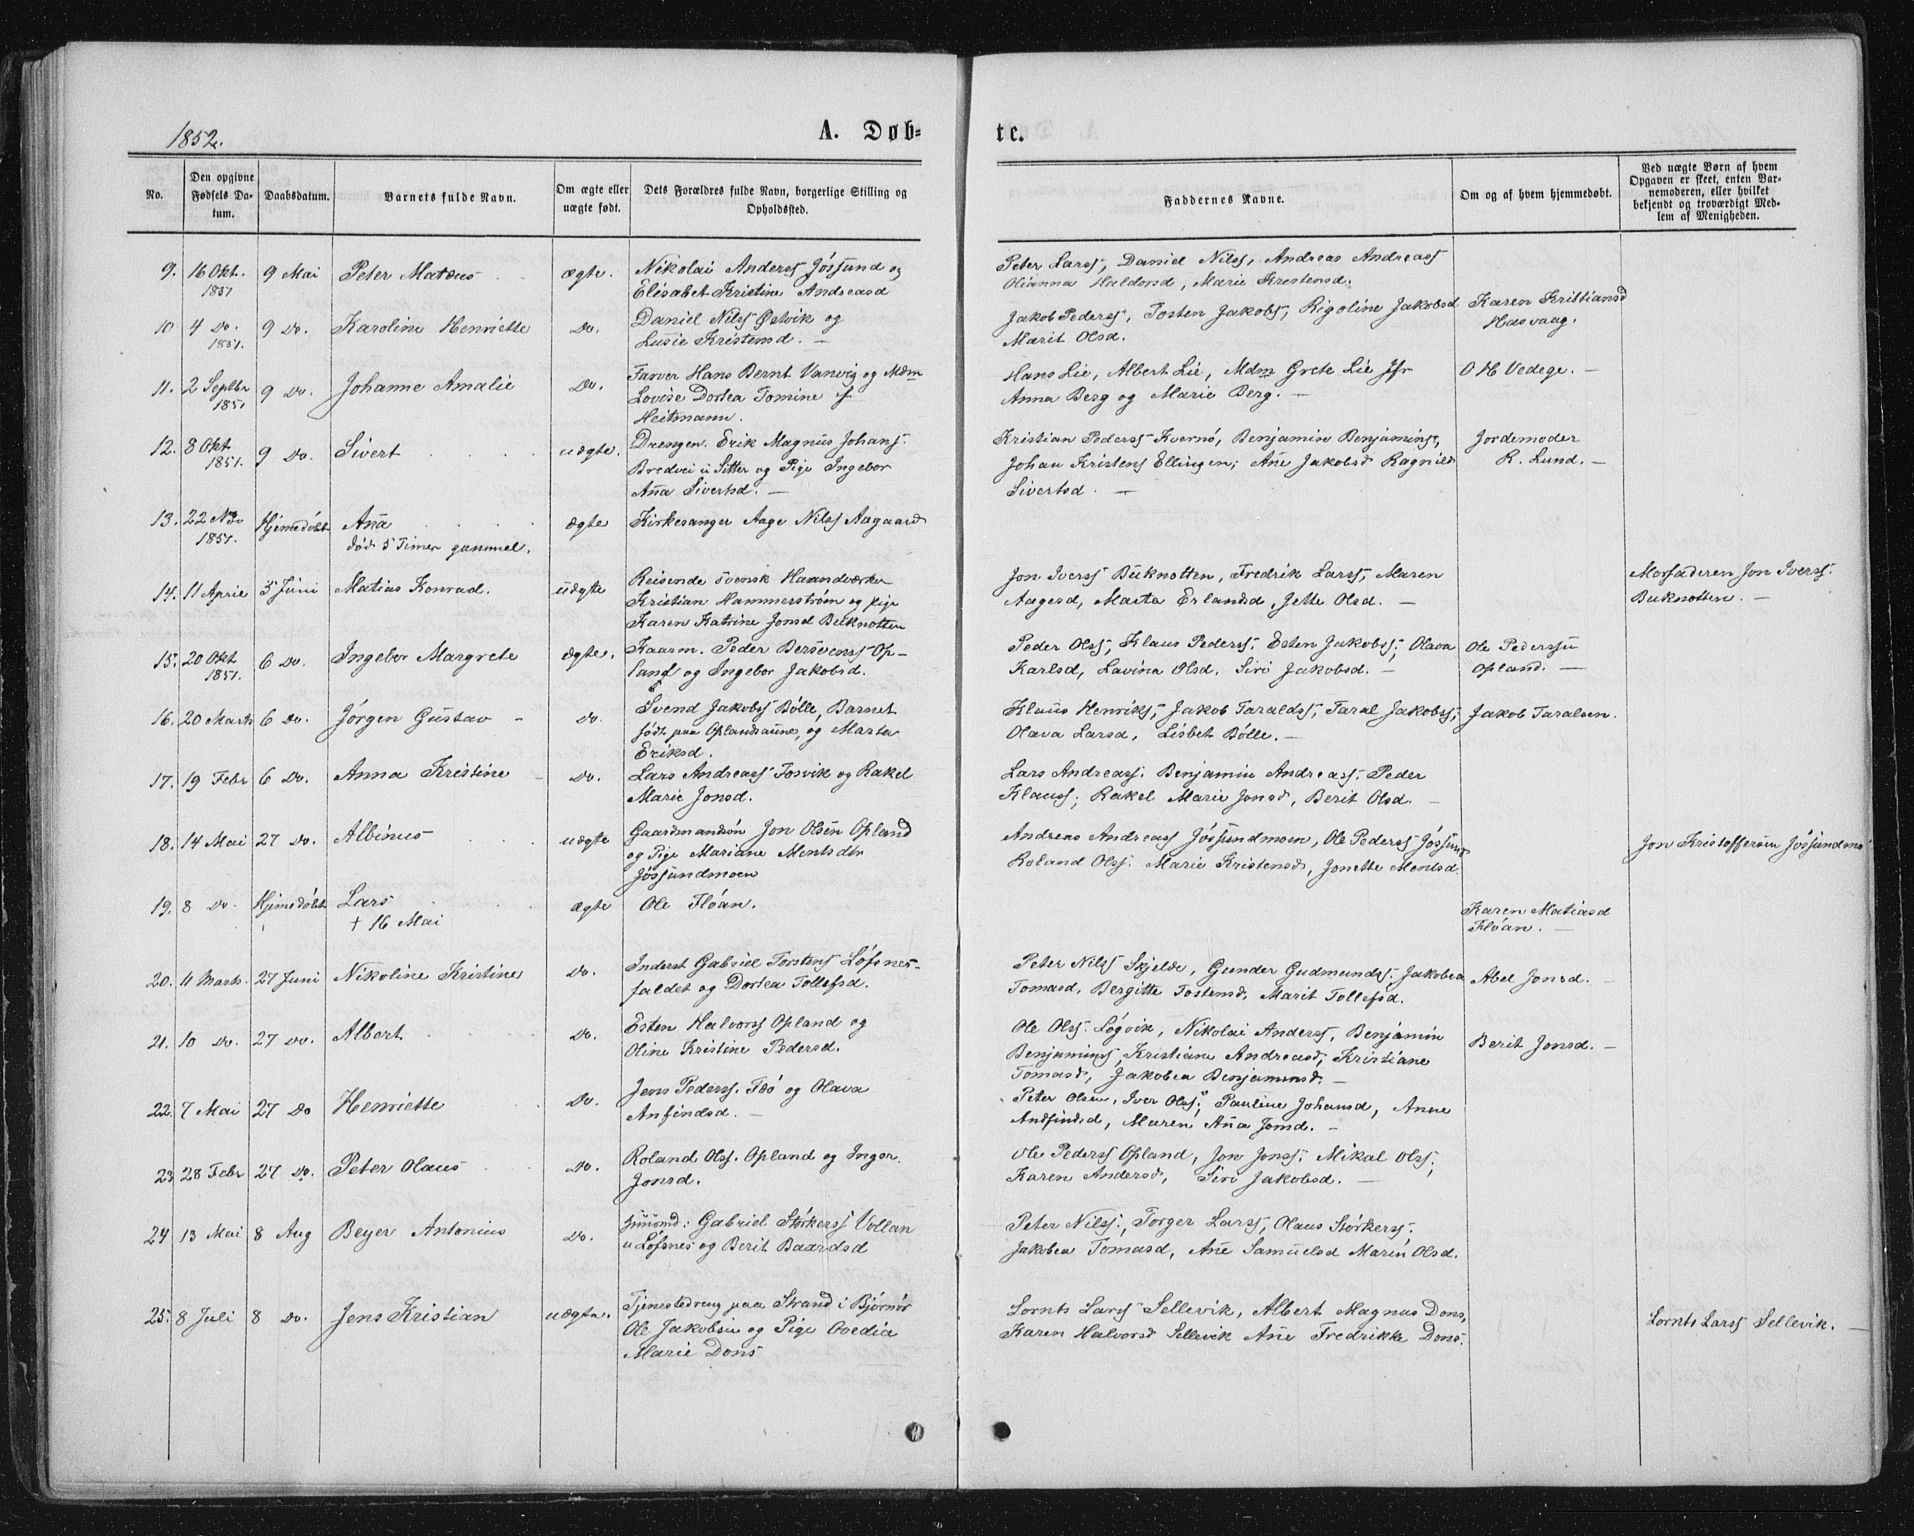 1852.
A. Døb-
te.
No.
Den opgivne Fødsels Da-
tum.
Daabsdatum.
Barnets fulde Navn.
Om ægte eller
uægte født.
Dets Forældres fulde Navn, borgerlige Stilling og
Opholdssted.
Faddernes Navne.
Om og af hvem hjemmedøbt.
Ved uægte Børn af hvem
Opgaven er skeet, enten Bar-
nemoderen, eller hvilket
bekjendt og troværdigt Med-
lem af Menigheden.
9. 16 Okt. 1851 9 Mai Peter Matæus ægte.
Nikolai Anderss Jössund og
Elisabet Kristine Andreasd
Peter Larss, Daniel Nilss, Andreas Andreass
Olianna Haldorsd, Marie Kristensd.
10 4 Do. 1851. 9 Do. Karoline Henriette Do.
Daniel Nilss Østvik og
Lusie Kristensd. —
Jakob Pederss, Tosten Jakobs, Rigoline Jakobsd
Marit Olsd.
Karen Kristiansd
Hasvaag.
11. 2 Septbr 1851 9 Do. Johanne Amalie Do.
Farver Hans Bernt Vanvig og Mdm
Lovise Dortea Tomine f
Heitmann.
Hans Lie, Albert Lie, Mdm Grete Lie Jfr
Anna Berg og Marie Berg. —
O H Vedege. —
12. 8 Okt 1851. 9 Do. Sivert uægte.
Drengen. Erik Magnus Johans.
Bredvei u Sitter og Pige Ingebor
Aña Sivertsd. —
Kristian Pederss Kvernö, Benjamin Benjamins,
Johan Kristens Ellingen, Ane Jakobsd Ragnild
Sivertsd. —
Jordemoder
R. Lund. —
13. 22 Nov 1851. Hjemedöbt Aña
död 5 Timer gammel. ægte
Kirkesanger Aage Nilss Aagaard
14. 11 April 5 Juni Matias Konrad. uægte
Reisende svensk Haandværker
Kristian Hammerström og Pige
Karen Katrine Jonsd Buknotten
Jon Iverss Buknotten, Fredrik Larss, Maren
Aagesd, Marta Erlandsd, Jette Olsd. —
Morfaderen Jon Iverss.
Buknotten. —
15. 20 Okt 1851. 6 Do. Ingebor Margrete ægte.
Kaarm. Peder Bersvenss Op-
land og Ingebor Jakobsd.
Peder Olss, Klaus Pederss, Esten Jakobss, Olava
Karlsd, Lavina Olsd, Siri Jakobsd. —
Ole Pederssen
Opland. —
16. 20 Marts 6 Do. Jörgen Gustav Do.
Svend Jakobss Bölle, Barnet
födt paa Oplandsaune, og Marta
Eriksd.
Klaus Henriks, Jakob Taraldss, Taral Jakobss,
Olava Larsd, Lisbet Bölle. —
Jakob Taralsen.
17. 19 Febr 6 Do. Anna Kristine Do.
Lars Andreass Tosvik og Rakel
Marie Jonsd.
Lars Andreass. Benjamin Andreass, Peder
Klauss, Rakel Marie Jonsd, Berit Olsd. —
18. 14 Mai 27 Do. Albinus uægte
Gaardmandsön Jon Olsen Opland
og Pige Mariane Mentsdtr
Jössundmoen
Andreas Andreass Jössundmoen, Ole Pederss Jössund
Roland Olss. Marie Kristensd, Jonette Mentsd.
Jon Kristoffersen Jössundmo
19. 8 Do. Hjemedöbt Lars
† 16 Mai ægte
Ole Flöan.
Karen Matiasd
Flöan. —
20. 11 Marts. 27 Juni Nikoline Kristine Do.
Inderst Gabriel Torstens Löfsnes-
faldet og Dortea Tollefsd.
Peter Nilss Skjelde, Gunder Gudmundss. Jakobea
Tomasd, Bergitte Tostensd, Marit Tollefsd.
Abel Jonsd. —
21. 10 Do. 27 Do. Albert Do.
Esten Halvorss Opland og
Oline Kristine Pedersd.
Ole Olss. Lögvik, Nikolai Anderss, Benjamin
Benjaminss, Kristiane Andreasd, Kristiane
Tomasd, Jakobea Benjaminsd. —
Berit Jonsd. —
22. 7 Mai 27 Do Henriette Do.
Jens Pederss. Tæö og Olava
Anfindsd. —
Peter Olsen, Iver Olss, Pauline Johansd, Anne
Andfindsd, Maren Aña Jonsd. —
23 28 Febr 27 Do. Peter Olaus Do.
Roland Olss. Opland og Inger
Jonsd.
Ole Pederss Opland, Jon Jonss. Mikal Olss,
Karen Andersd, Siri Jakobsd. —
24 13 Mai 8 Aug Beyer Antonius Do.
Huusmd: Gabriel Störkerss Vollan
u Löfsnes og Berit Baardsd
Peter Nilss., Torger Larss, Olaus Störkerss,
Jakobea Tomasd, Ane Samuelsd Maren Olsd.
25. 8 Juli 8 Do. Jens Kristian uægte.
Tjenestedreng paa Strand i Björnör
Ole Jakobsen og Pige Ovedia
Marie Dons
Lornts Larss Sellevik, Albert Magnus Dons,
Karen Halvorsd Sellevik Ane Fredrikke Dons.
Lornts Larss Sellevik. —